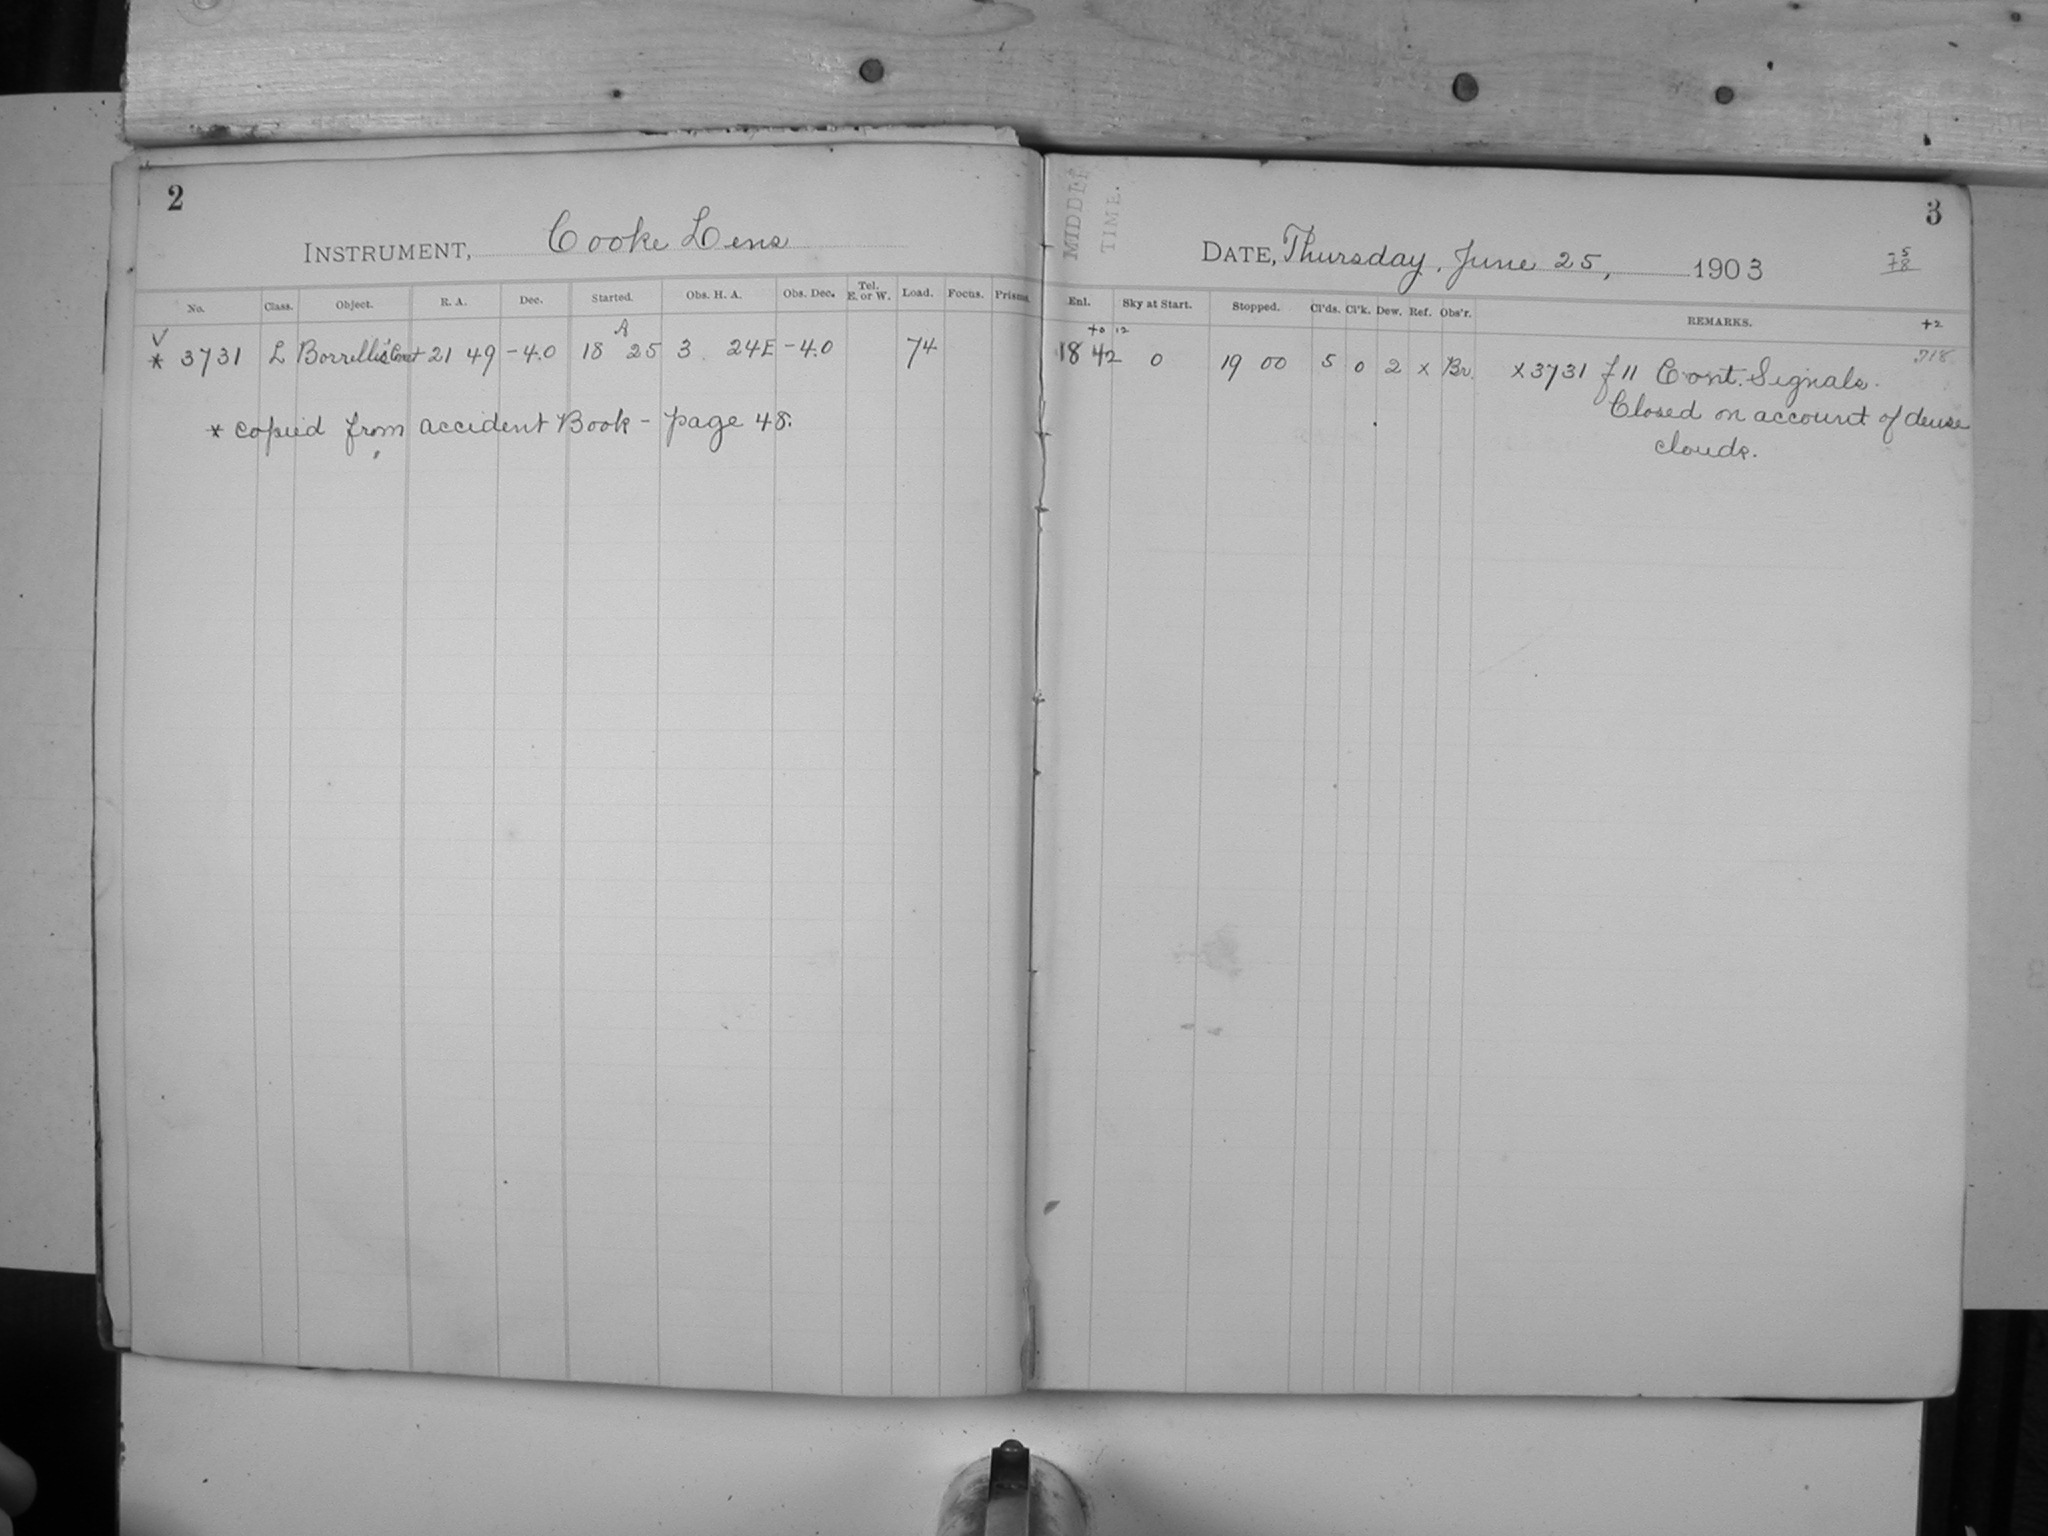 2
INSTRUMENT, Cooke Lens
No. Class. Object. R. A. Dec. Started. Obs. H. A. Obs. Dec. Tel. E. or W. Load. Focus. Prisms.
✓
* 3731 L Borrelli's Comet 21 49 -4.0 18 25 3 24E -4.0 74
* copied from accident Book - page 48.
MIDDLE
TIME.
3
DATE, Thursday, June 25, 1903
-5
78
Enl. Sky at Start. Stopped. Cl'ds. Cl'k. Dew. Ref. Obs'r. REMARKS. +2
+0 12
18 42 0 19 00 5 0 2 x Br. x3731 f 11 Cont. Signals. 718
Closed on account of dense
clouds.